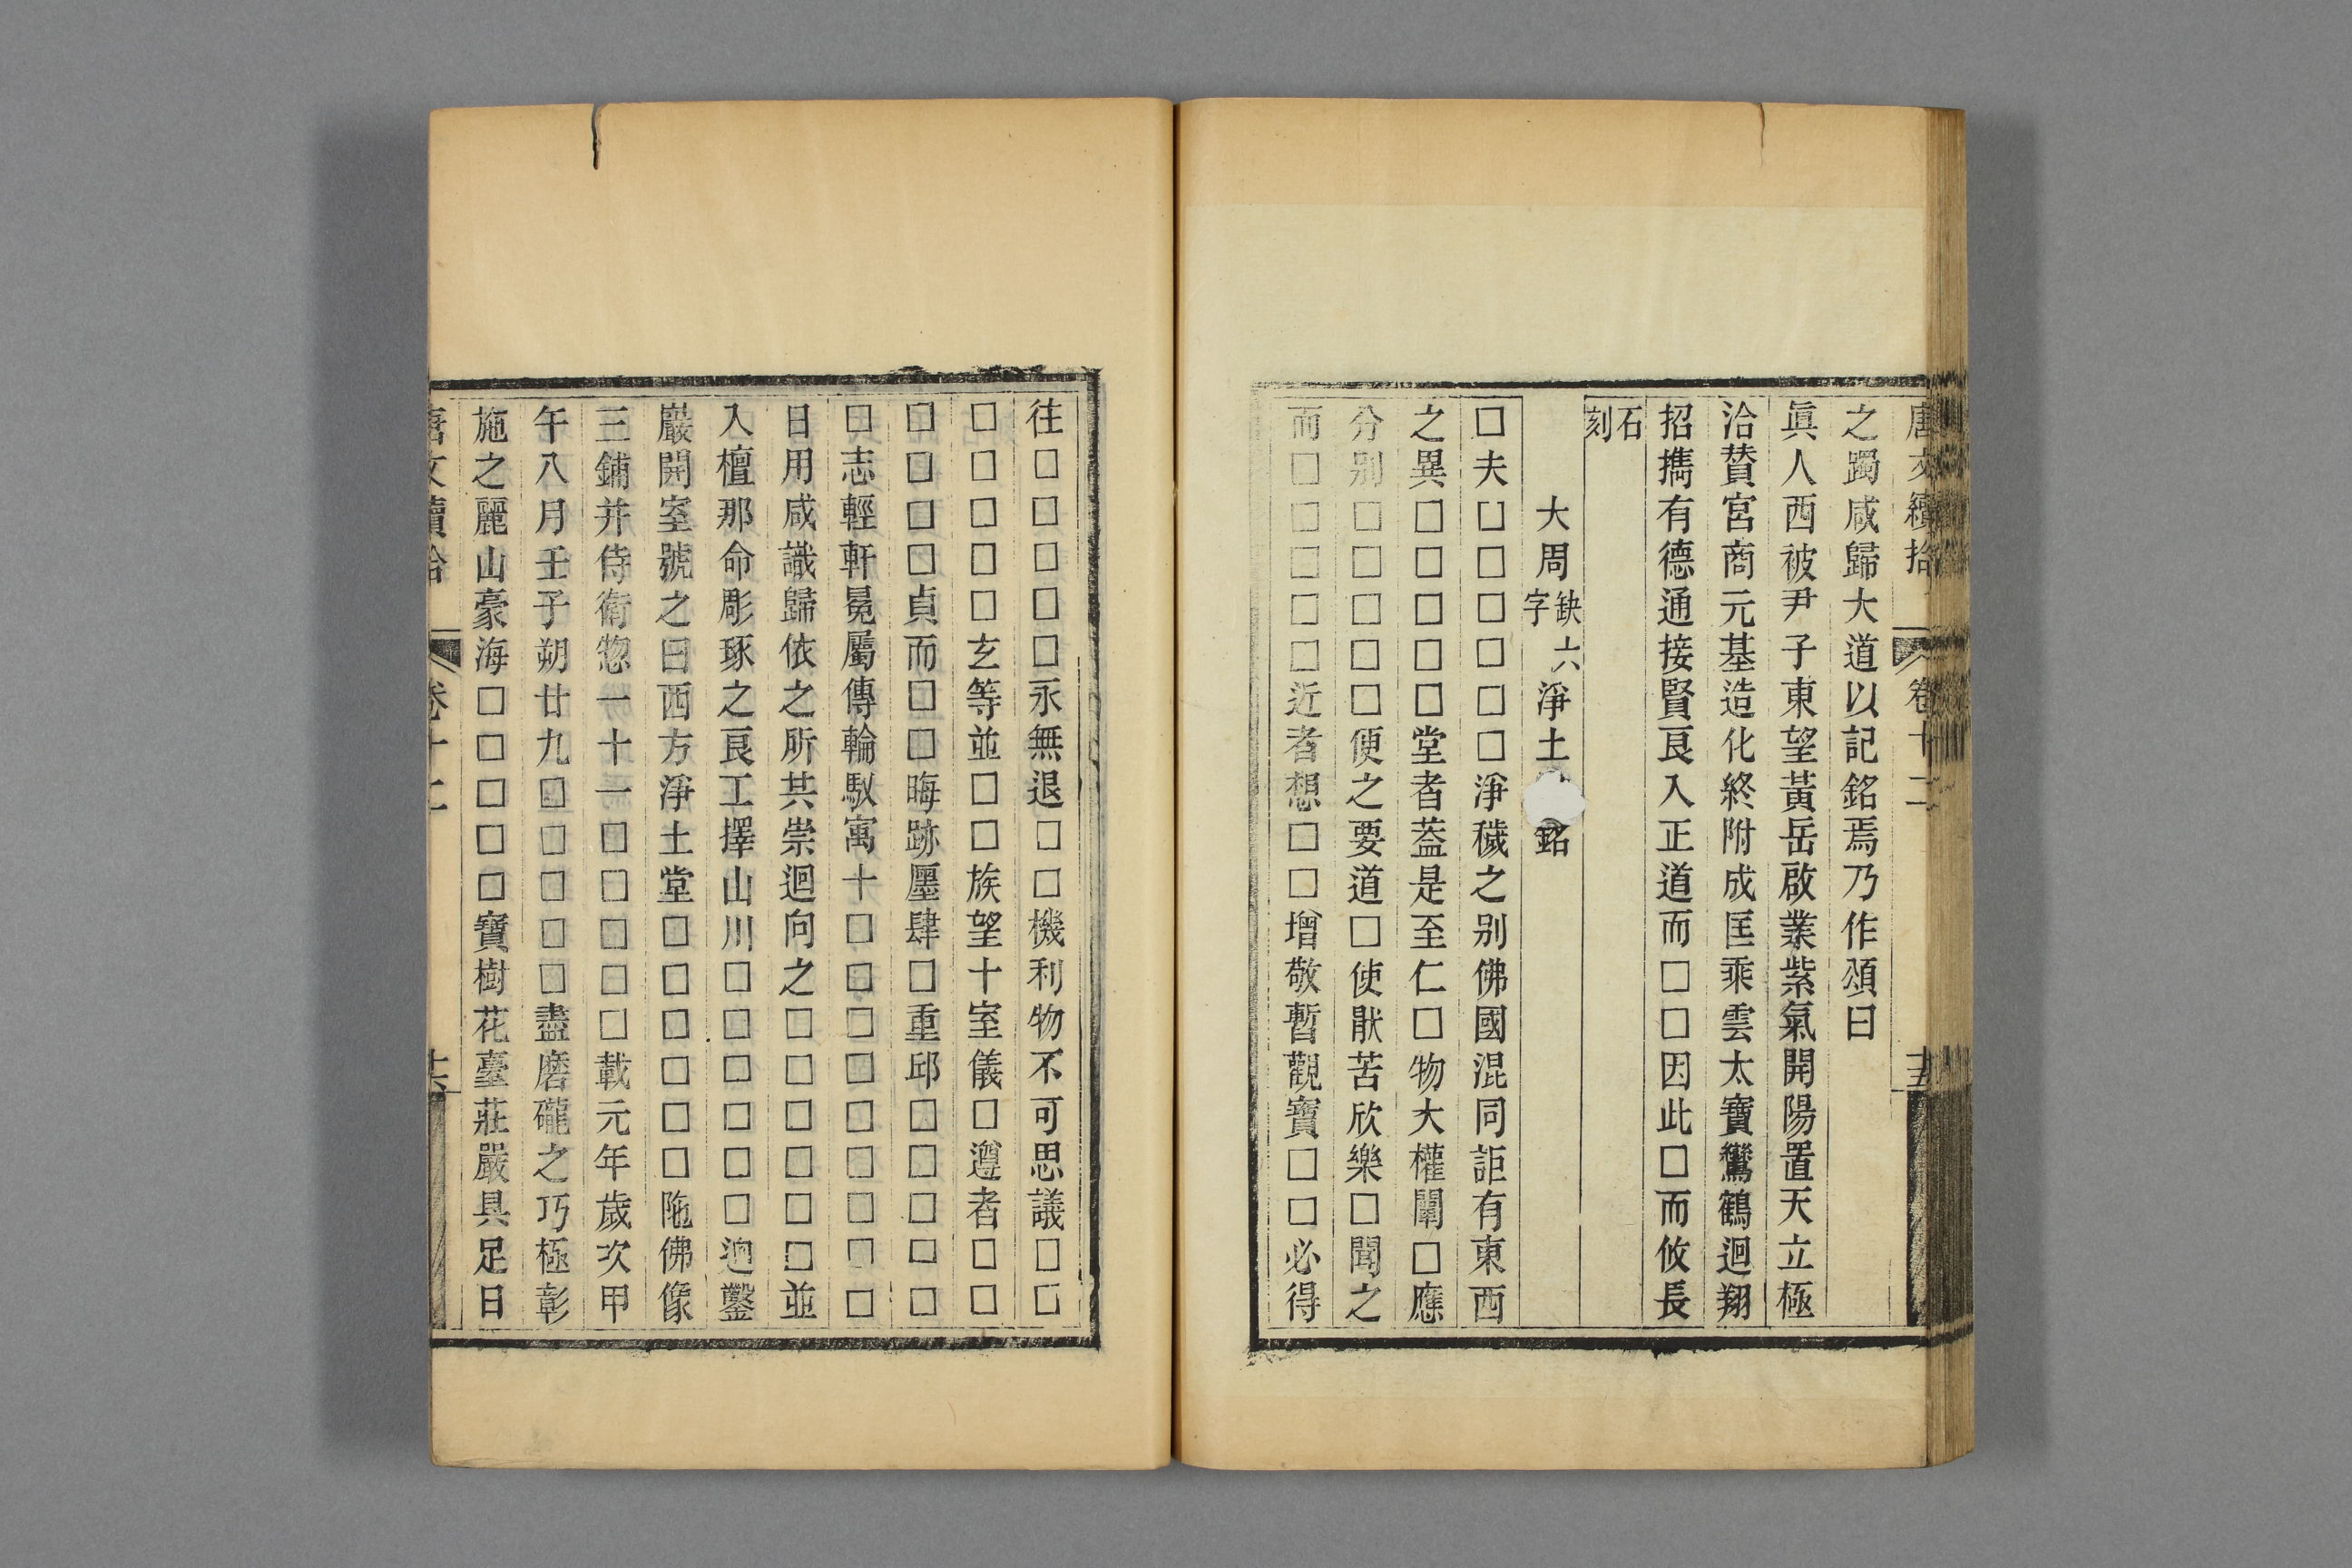 唐文續拾 卷十二 十五
之躅咸歸大道以記銘焉乃作頌曰
眞人西被尹子東望黃岳啟業紫氣開陽置天立極
洽贊宮商元基造化終附成匡乘雲太寶鸞鶴迴翔
招擕有德通接賢良入正道而□□因此□而攸長
石刻
大周缺六字淨土 銘
□夫□□□□□□淨穢之別佛國混同詎有東西
之異□□□□□堂者葢是至仁□物大權闡□應
分別□□□□□便之要道□使猒苦欣樂□聞之
而□□□□□近者想□□增敬暫觀寶□□必得
往□□□□□永無退□□機利物不可思議□□
□□□□□玄等並□□族望十室儀□遵者□□
□□□□貞而□□晦跡㕓肆□重邱□□□□□
□志輕軒冕屬傳輪馭寓十□□□□□□□□□
日用咸識歸依之所共崇迴向之□□□□□□並
入檀那命彫琢之良工擇山川□□□□□□迥鑿
巖開室號之曰西方淨土堂□□□□□□陁佛像
三鋪并侍衛惣一十一□□□□□載元年歲次甲
午八月壬子朔廿九□□□□□盡磨礲之巧極彰
施之麗山豪海□□□□□寶樹花臺莊嚴具足日
唐文續拾 卷十二 十六